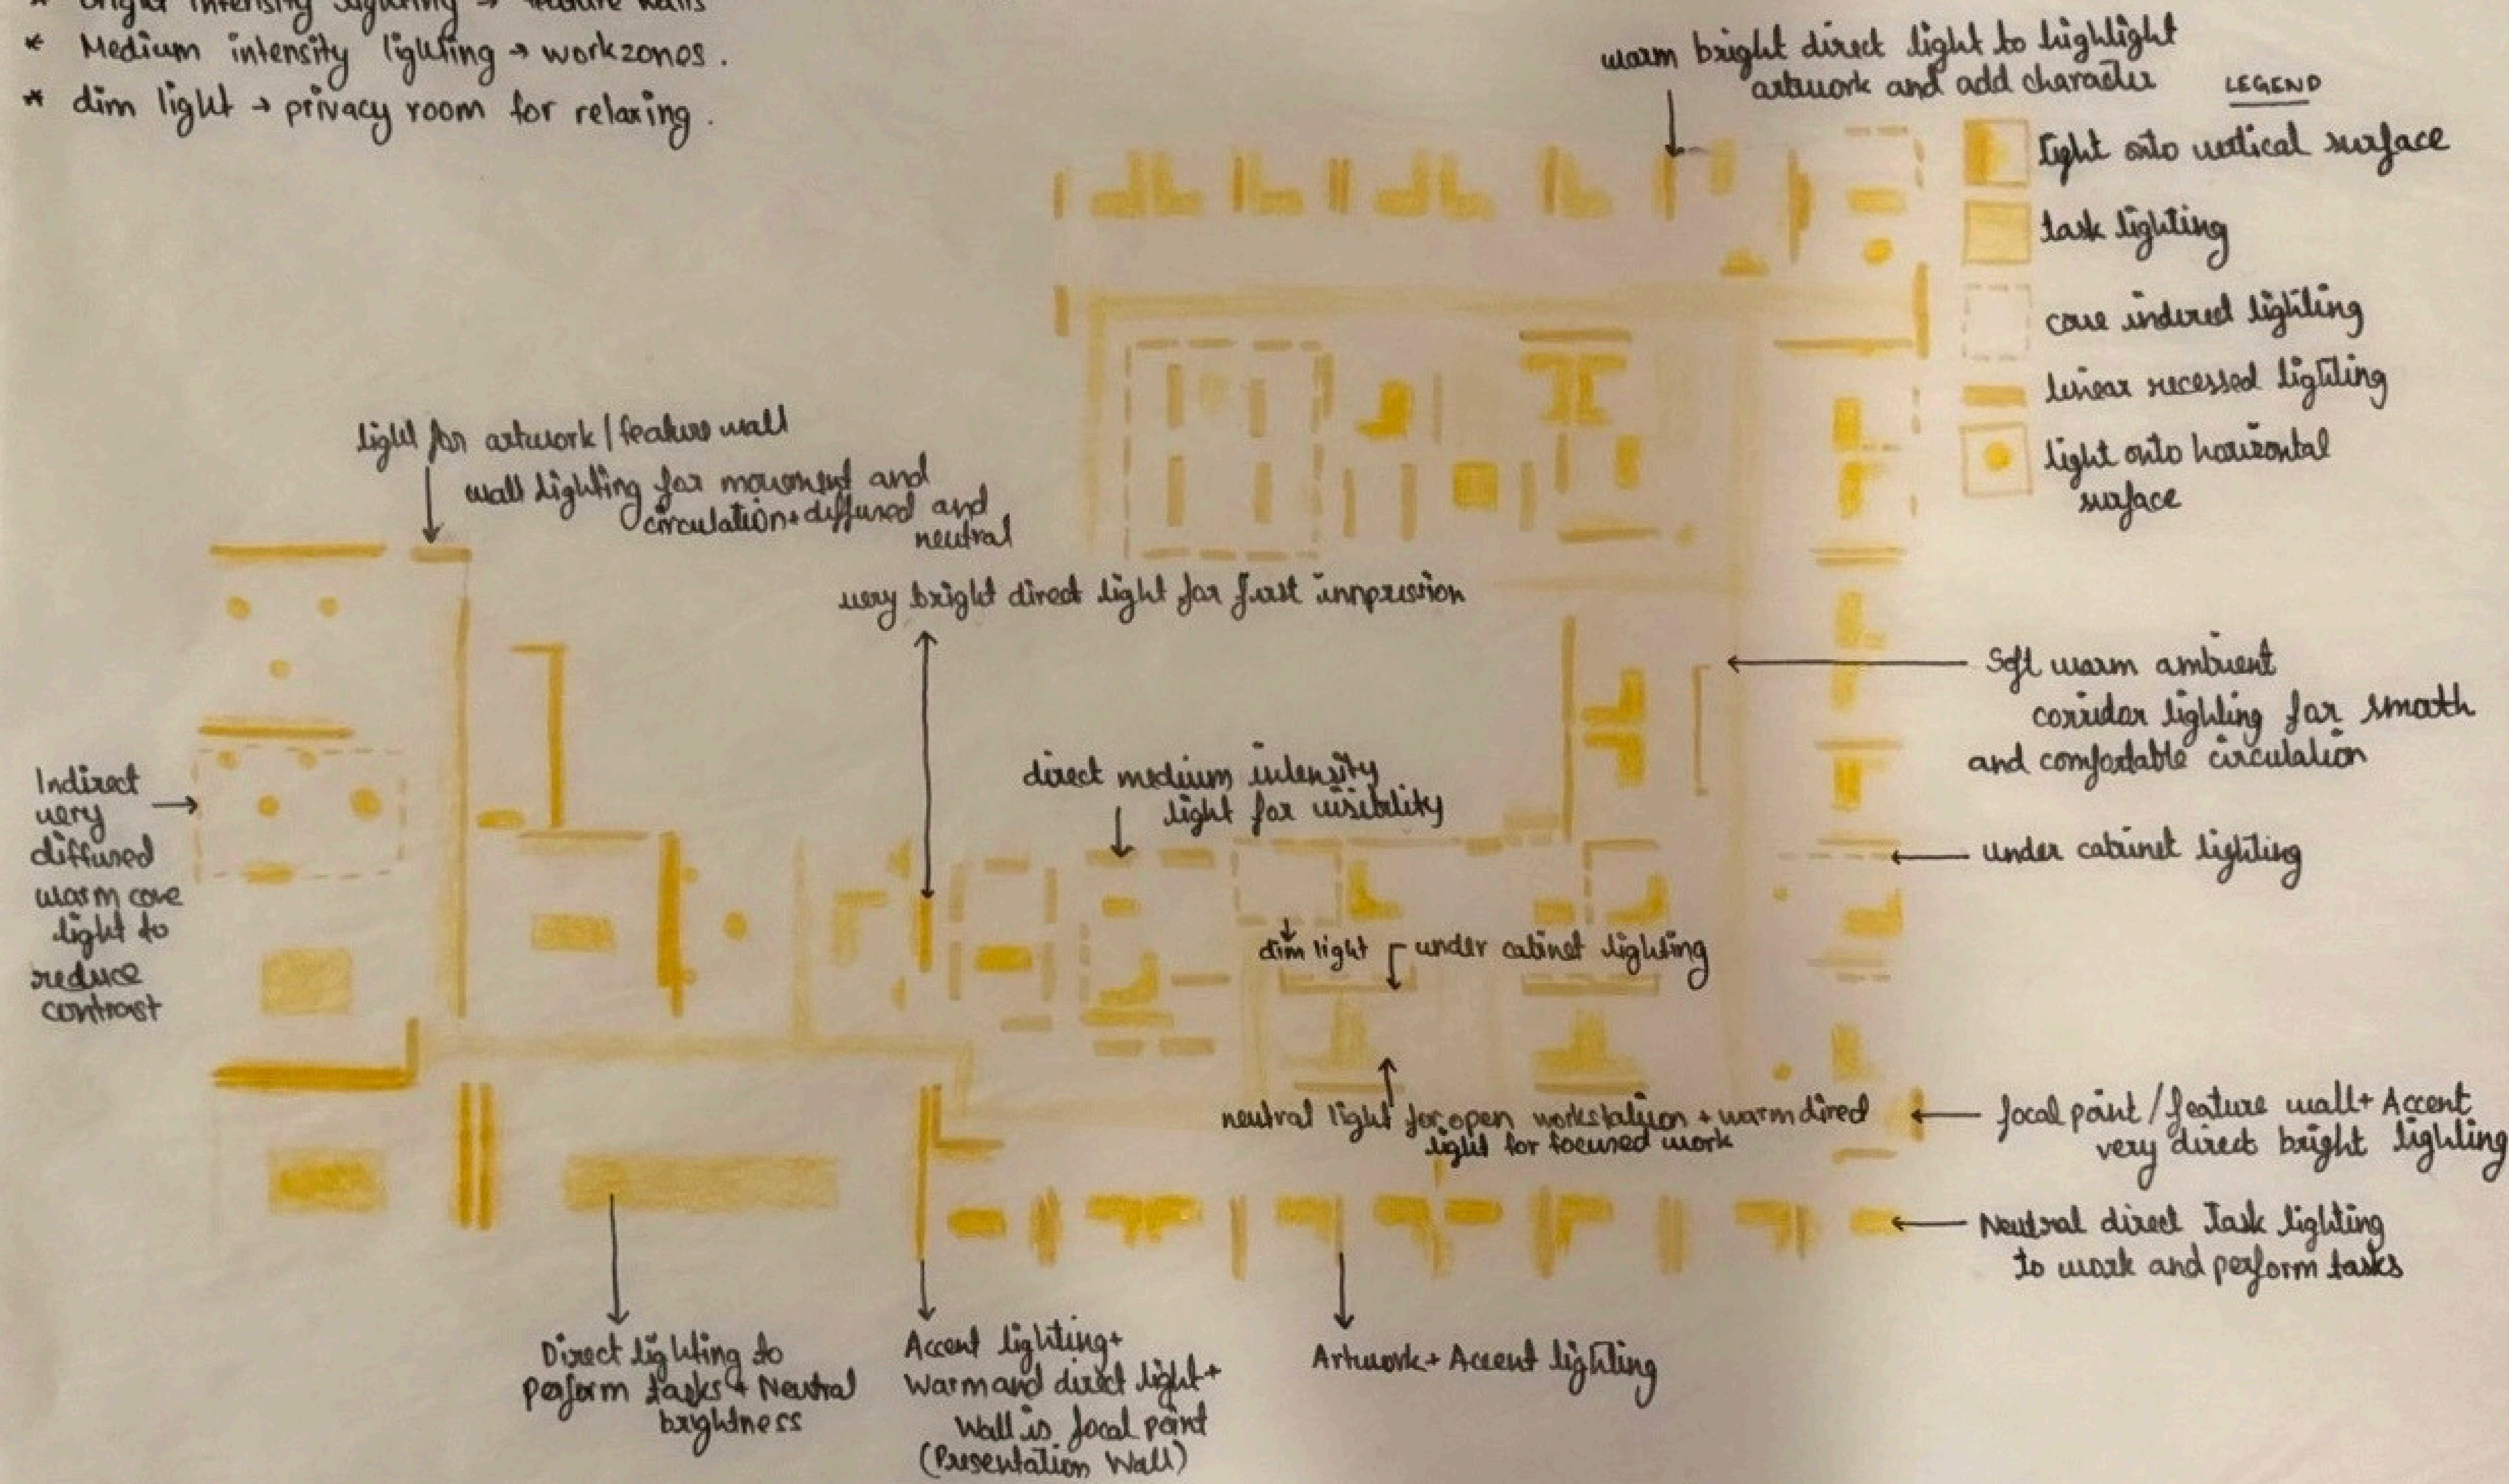 * Bright intensity lighting → feature walls
* Medium intensity lighting → workzones.
* dim light → privacy room for relaxing.
warm bright direct light to highlight
artwork and add character
LEGEND
light onto vertical surface
task lighting
cove indirect lighting
linear recessed lighting
light onto horizontal
surface
light for artwork/feature wall
wall lighting for movement and
circulation + diffused and
neutral
very bright direct light for first impression
Indirect
very
diffused
warm cove
light to
reduce
contrast
direct medium intensity
light for visibility
Soft warm ambient
corridor lighting for smooth
and comfortable circulation
under cabinet lighting
dim light
under cabinet lighting
neutral light for open workstation + warm direct
light for focused work
focal point/feature wall + Accent
very direct bright lighting
Neutral direct Task lighting
to work and perform tasks
Direct lighting to
perform tasks + Neutral
brightness
Accent lighting +
Warm and direct light +
Wall is focal point
(Presentation Wall)
Artwork + Accent lighting